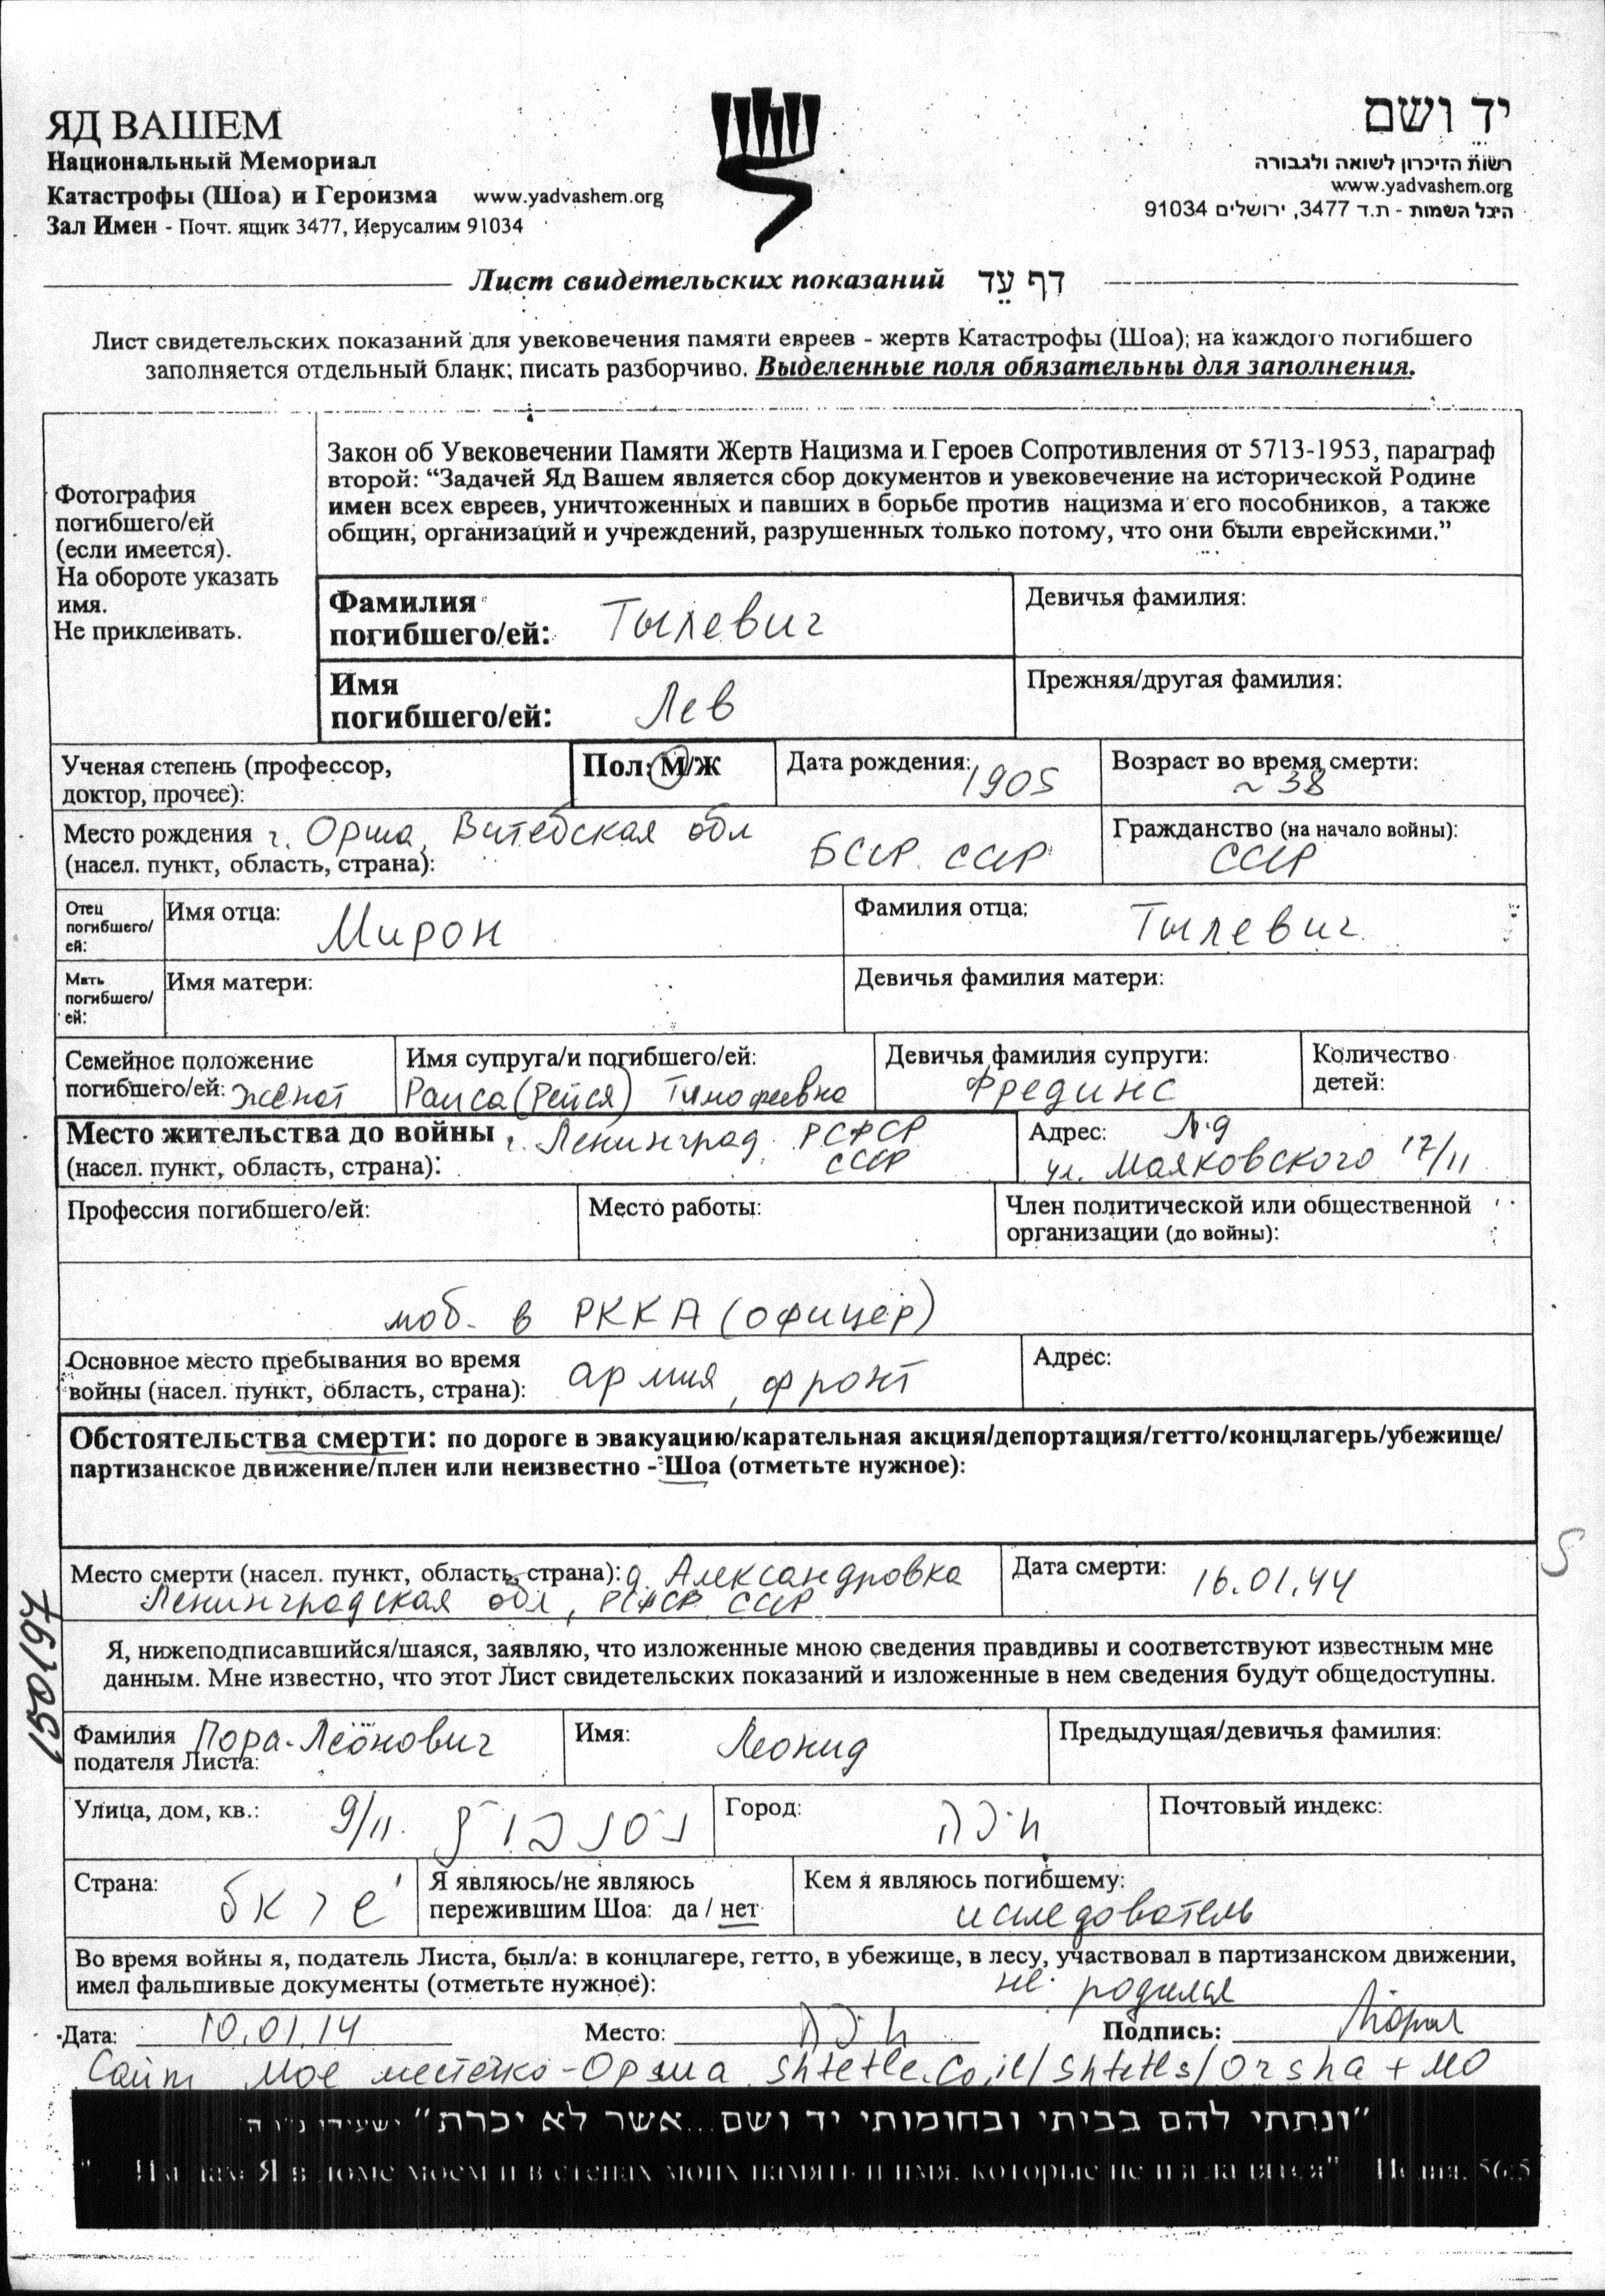 ЯД ВАШЕМ
Национальный Мемориал
Катастрофы (Шоа) и Героизма www.yadvashem.org
Зал Имен - Почт. ящик 3477, Иерусалим 91034
יד ושם
רשות הזיכרון לשואה ולגבורה
www.yadvashem.org
היכל השמות - ת.ד 3477, ירושלים 91034
Лист свидетельских показаний דף עד
Лист свидетельских показаний для увековечения памяти евреев - жертв Катастрофы (Шоа); на каждого погибшего
заполняется отдельный бланк; писать разборчиво. Выделенные поля обязательны для заполнения.
Фотография
погибшего/ей
(если имеется).
На обороте указать
имя.
Не приклеивать.
Закон об Увековечении Памяти Жертв Нацизма и Героев Сопротивления от 5713-1953, параграф
второй: “Задачей Яд Вашем является сбор документов и увековечение на исторической Родине
имен всех евреев, уничтоженных и павших в борьбе против нацизма и его пособников, а также
общин, организаций и учреждений, разрушенных только потому, что они были еврейскими.”
Фамилия
погибшего/ей: Тылевич
Девичья фамилия:
Имя
погибшего/ей: Лев
Прежняя/другая фамилия:
Ученая степень (профессор,
доктор, прочее):
Пол: М/Ж
Дата рождения: 1905
Возраст во время смерти:
~ 38
Место рождения г. Орша, Витебская обл
(насел. пункт, область, страна): БССР СССР
Гражданство (на начало войны):
СССР
Отец
погибшего/
ей:
Имя отца: Мирон
Фамилия отца: Тылевич
Мать
погибшего/
ей:
Имя матери:
Девичья фамилия матери:
Семейное положение
погибшего/ей: женат
Имя супруга/и погибшего/ей:
Раиса (Рейся) Тимофеевна
Девичья фамилия супруги:
Фрединс
Количество
детей:
Место жительства до войны г. Ленинград, РСФСР
(насел. пункт, область, страна): СССР
Адрес:
ул. Маяковского 17/11
Профессия погибшего/ей:
Место работы:
Член политической или общественной
организации (до войны):
моб. в РККА (офицер)
Основное место пребывания во время
войны (насел. пункт, область, страна): армия, фронт
Адрес:
Обстоятельства смерти: по дороге в эвакуацию/карательная акция/депортация/гетто/концлагерь/убежище/
партизанское движение/плен или неизвестно - Шоа (отметьте нужное):
Место смерти (насел. пункт, область, страна): д. Александровка
Ленинградская обл, РСФСР СССР
Дата смерти: 16.01.44
Я, нижеподписавшийся/шаяся, заявляю, что изложенные мною сведения правдивы и соответствуют известным мне
данным. Мне известно, что этот Лист свидетельских показаний и изложенные в нем сведения будут общедоступны.
Фамилия Пора-Леонович
подателя Листа:
Имя: Леонид
Предыдущая/девичья фамилия:
Улица, дом, кв.: 9/11.
Город: חיפה
Почтовый индекс:
Страна:
Я являюсь/не являюсь
пережившим Шоа: да / нет
Кем я являюсь погибшему:
исследователь
Во время войны я, податель Листа, был/а: в концлагере, гетто, в убежище, в лесу, участвовал в партизанском движении,
имел фальшивые документы (отметьте нужное): не родился
Дата: 10.01.14 Место: חיפה Подпись:
Сайт Мое местечко-Орша shtetle.co.il/shtetls/orsha + МО
"ונתתי להם בביתי ובחומותי יד ושם...אשר לא יכרת" ישעיהו נ"ו ה'